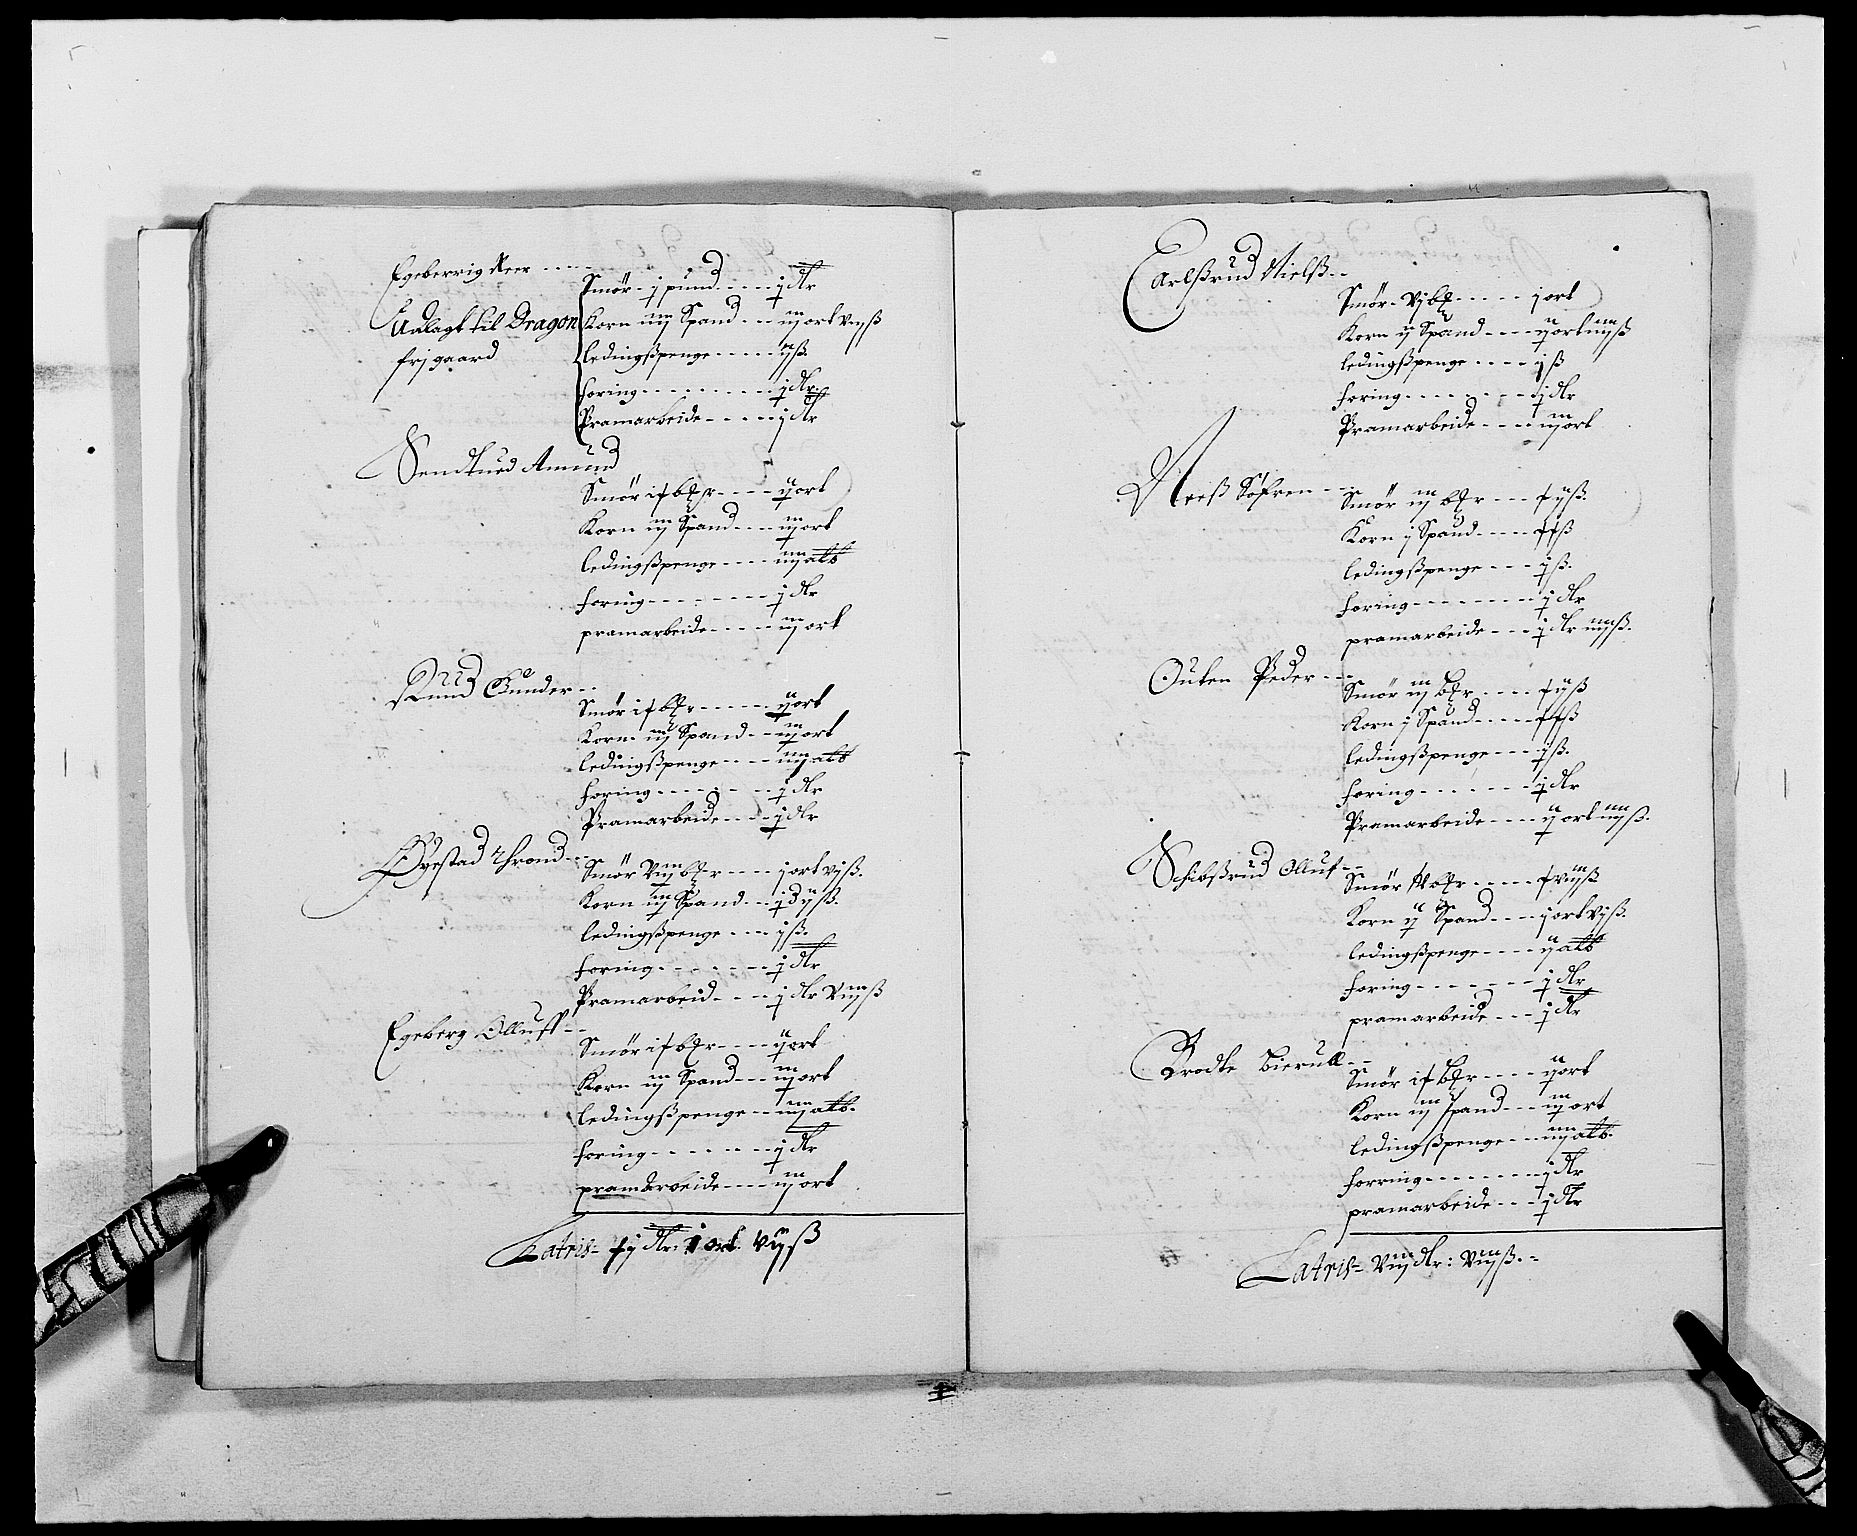 Egeberrig Aeer - - - - -
Smör - j pund - - - - - j dlr
Udlagt til Dragon
Korn iiij Spand - - - iij ort viijß
frj gaard
ledingßpenge - - - - - ijß.
foring - - - - - - - - - j dlr.
Pramarbeide - - - - - j dlr
Amund
Smör - - - - ij ort
Korn iij Spand - - - - iij ort
ledingßpenge - - - - iiij alb
foring - - - - - - - j dlr
pramarbeide - - - - - iij ort
Ruud Gunder - -
Smör - - - - - ij ort
Korn iij Spand - - - iij ort
ledingßpenge - - - - iiij alb
foring - - - - - - - j dlr
Pramarbeide - - - - j dlr
Öfrestad Thrond - - -
Smör viij - - - - j ort vjß.
Korn iiij Spand - - - jd ijß.
ledingßpenge - - - - jß.
foring - - - - - - - j dlr
Pramarbeid - - - - j dlr viijß
Egeberg Olluff - -
Smör - - - - ij ort
Korn iij Spand - - - iij ort
ledingßpenge - - - iiij alb.
foring - - - - - - - j dlr
pramarbeide - - - - iij ort
Latris= fj dlr: 1 ort. vijß
Carlßrud Nielß - -
Smör - vj - - - - - j ort
Korn ij Spand - - - - ij ort iiijß
ledingßpenge - - - - jß
foring - - - - - - - j dlr
Pramarbeide - - - - iij ort
Neeß Söfren - - -
Smör iij - - - fijß.
Korn j Spand - - - - ffß
ledingßpenge - - - jß.
foring - - - - - - - j dlr
pramarbeide - - - j dlr iiijß.
Outen Peder - - -
Smör iij - - - - fijß
Korn j Spand - - - - - ffß
ledingßpenge - - - - jß.
foring - - - - - - - j dlr
Pramarbeide - - - - ij ort iiijß.
Schibßrud Olluf - -
Smör - - - - - fviijß
Korn ij Spand - - - - j ort vjß.
ledingßpenge - - - - ij alb
foring - - - - - - - j dlr
pramarbeide - - - j dlr
Smör - - - - ij ort
Korn iij Spand - - - iij ort
ledingßpenge - - - iiij alb.
forring - - - - - - - j dlr
pramarbeide - - - j dlr
Latris= viij dlr: viijß. -